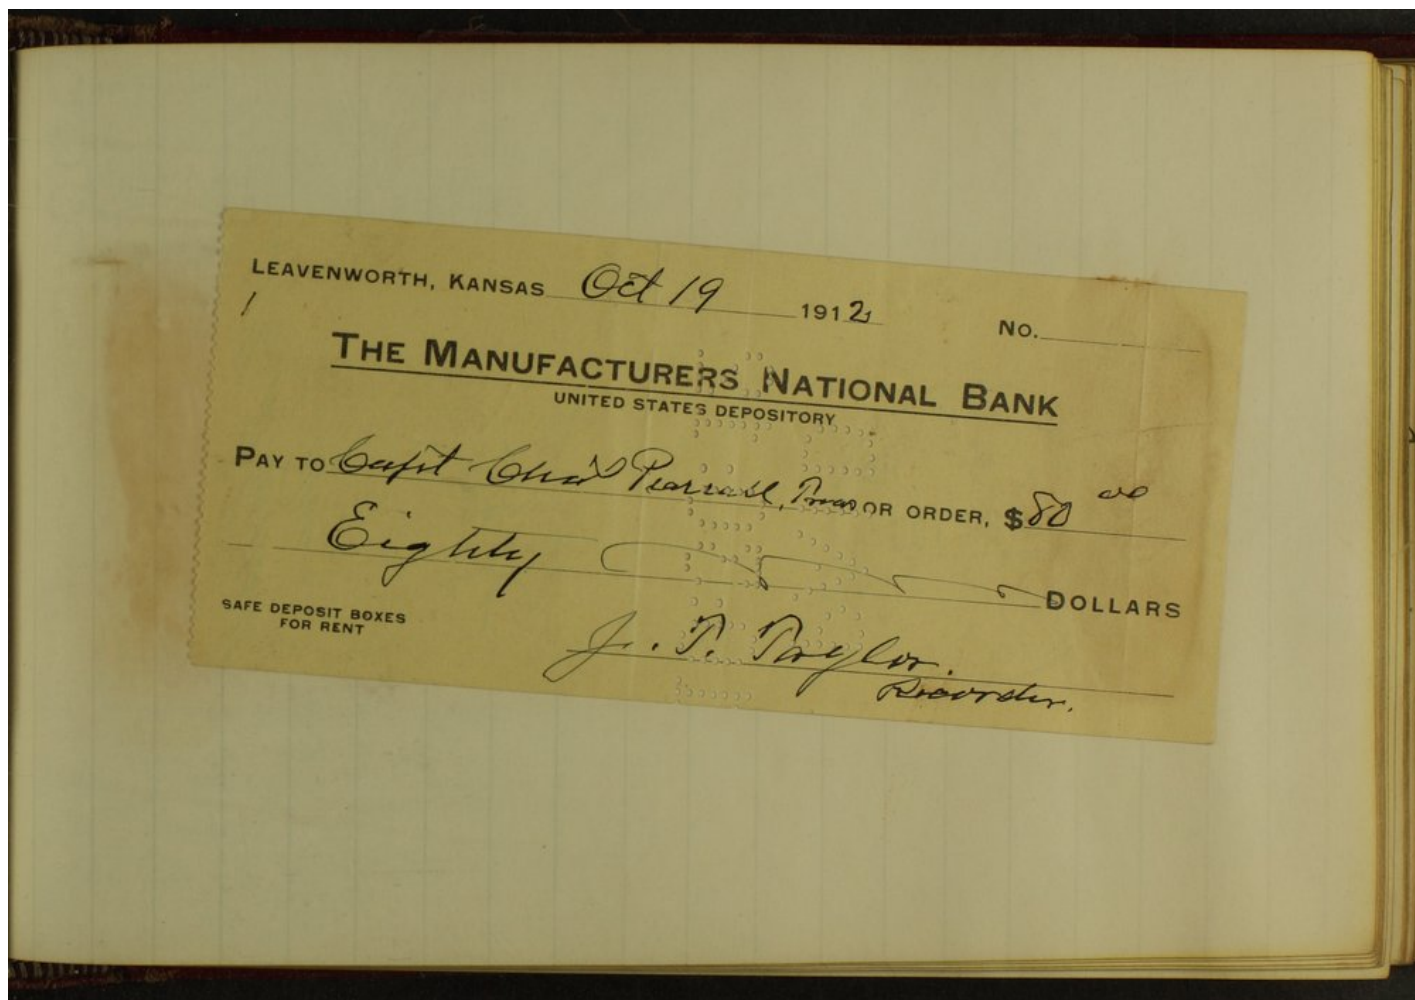 LEAVENWORTH, KANSAS Oct 19 1912 No.
1
THE MANUFACTURERS NATIONAL BANK
UNITED STATES DEPOSITORY
PAY TO Capt Chas Pearsall, Treas OR ORDER, $80 00
Eighty DOLLARS
SAFE DEPOSIT BOXES
FOR RENT
J. T. Taylor.
Recorder.